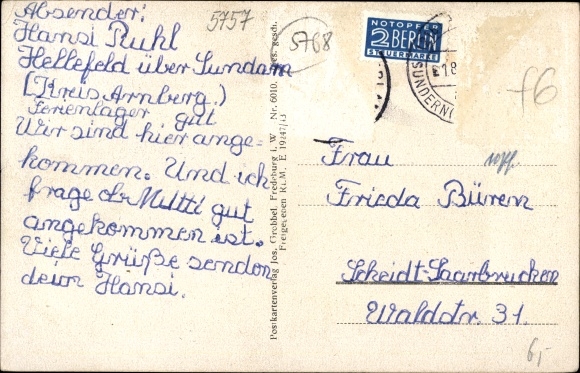 Absender:
Hansi Ruhl
Hellefeld über Sundern
(Kreis Arnberg.)
Ferienlager gut
Wir sind hier ange-
kommen. Und ich
frage ob Mutti gut
angekommen ist.
Viele Grüße senden
dein Hansi.
5757
5768
NOTOPFER
2 BERLIN
STEUERMARKE
SUNDERN
f6
Frau
Frieda Büren
Scheidt-Saarbrücken
Waldstr. 31.
6,-
Postkartenverlag Jos. Grobbel, Fredeburg i. W. Nr. 6010. Ges. gesch.
Freigegeben RLM. E 19247/43